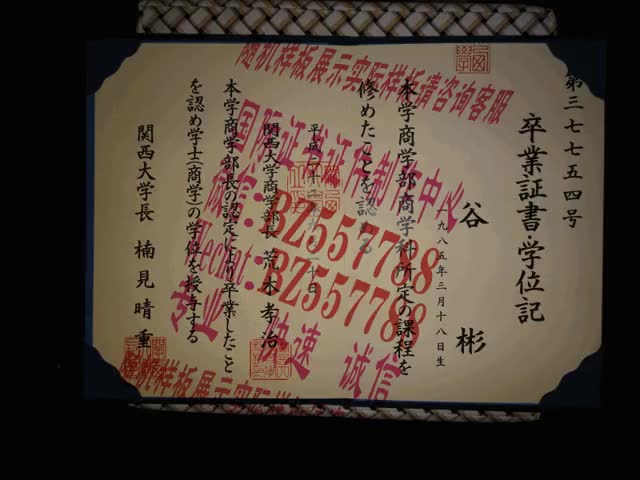 第三七七五四号
卒業証書・学位記
谷 彬
一九八五年三月十八日生
本学商学部商学科所定の課程を
修めたことを認める
平成
関西大学商学部長 荒木孝治
本学商学部長の認定により卒業したこと
を認め学士(商学)の学位を授与する
関西大学長 楠見晴重
随机样板展示实际样板请咨询客服
国际证书证件制作中心
微信:BZ557788
Wechat:BZ557788
专业 快速 诚信
随机样板展示实际样板